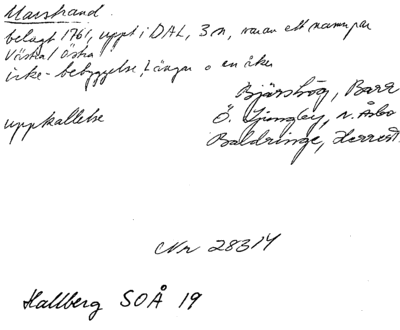 Marstrand
belagt 1761, uppt i DAL, 3 n, varav ett namnpar
Västra/Östra
icke-bebyggelse, ängar o en åker
Bjärshög, Bara
uppkallelse
Ö. Ljungby, N. Åsbo
Baldringe, Herrest.
Nr 28314
Hallberg SOÅ 19